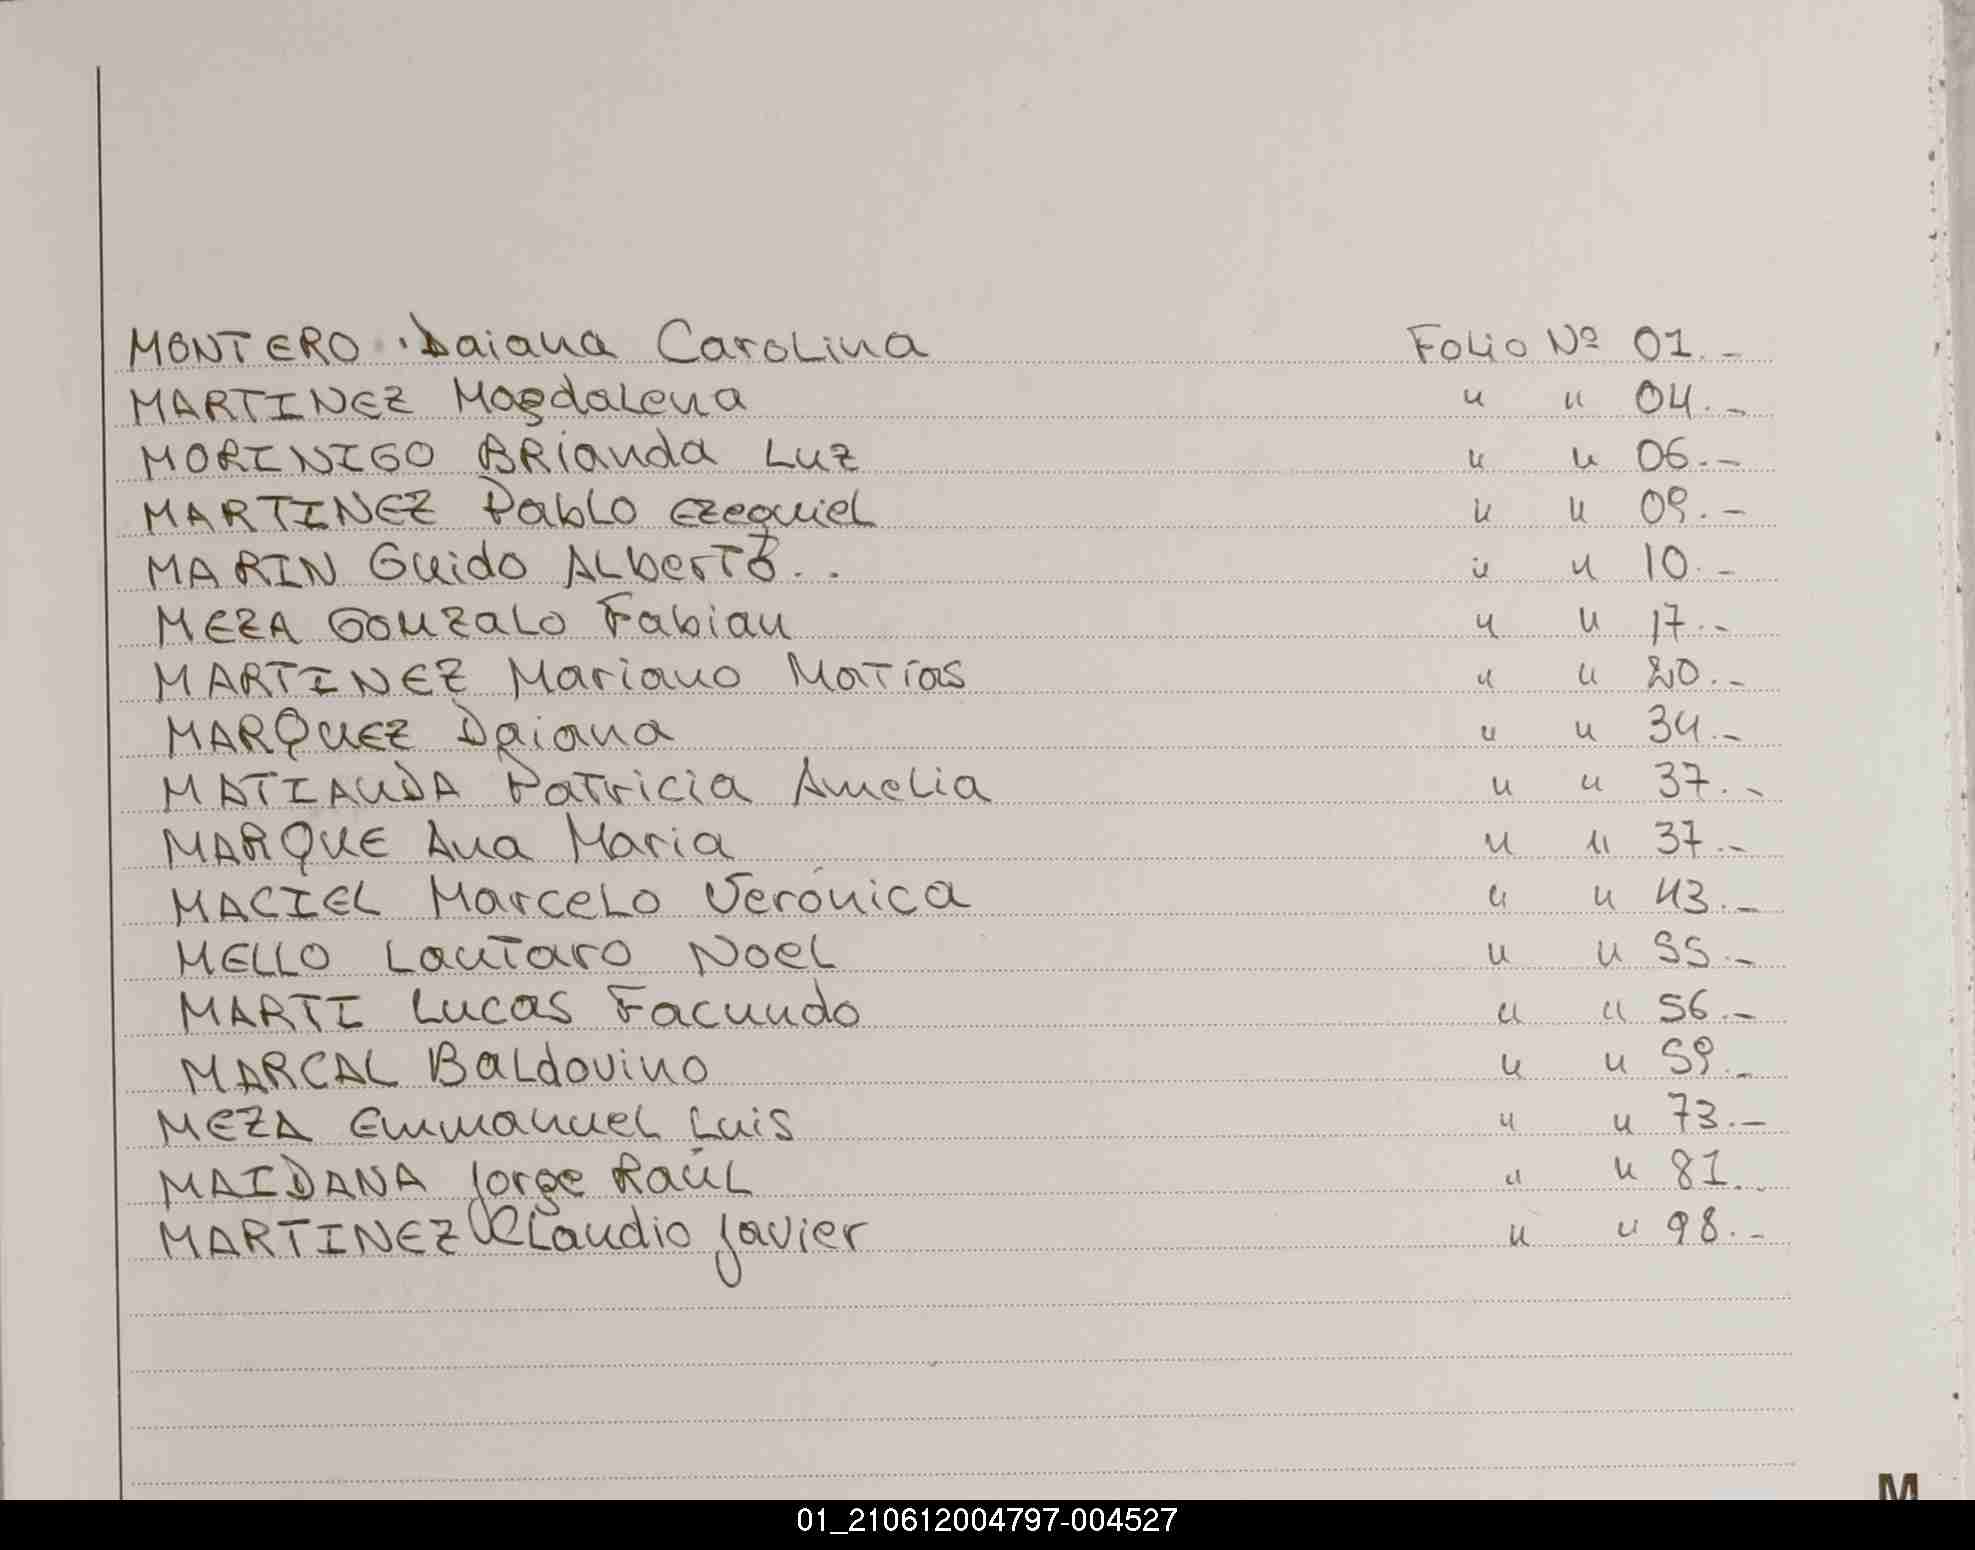 MONTERO Daiana Carolina Folio Nº 01.-
MARTINEZ Magdalena " " 04.-
MORINIGO BRianda Luz " " 06.-
MARTINEZ Pablo Ezequiel " " 09.-
MARIN Guido Alberto.. " " 10.-
MEZA Gonzalo Fabian " " 17.-
MARTINEZ Mariano Matías " " 20.-
MARQUEZ Daiana " " 34.-
MATIAUDA Patricia Amelia " " 37.-
MARQUE Ana Maria " " 37.-
MACIEL Marcelo Verónica " " 43.-
MELLO Lautaro Noel " " 55.-
MARTI Lucas Facundo " " 56.-
MARCAL Baldovino " " 59.-
MEZA Emmanuel Luis " " 73.-
MAIDANA Jorge Raúl " " 81.-
MARTINEZ Claudio Javier " " 98.-
M
01_210612004797-004527